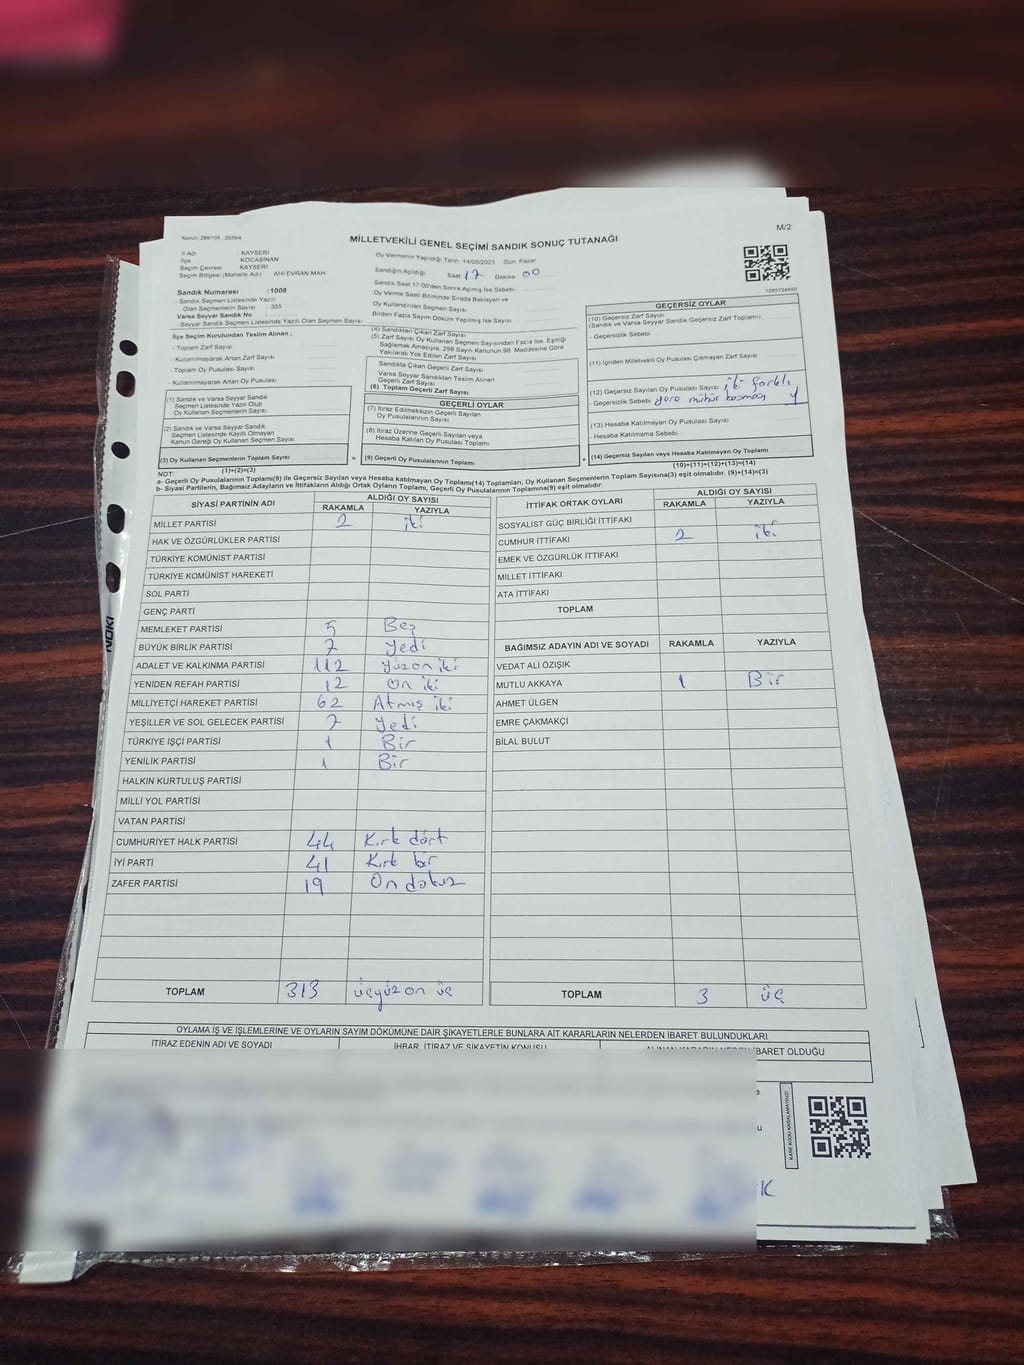 M/2
Kanun: 298/105 , 2839/4
MİLLETVEKİLİ GENEL SEÇİMİ SANDIK SONUÇ TUTANAĞI
İl Adı KAYSERİ
İlçe KOCASİNAN
Seçim Çevresi KAYSERİ
Seçim Bölgesi (Mahalle Adı) AHİ EVRAN MAH
Oy Vermenin Yapıldığı Tarih: 14/05/2023 Gün: Pazar
Sandığın Açıldığı Saat 17 Dakika 00
Sandık Saat 17:00'den Sonra Açımış İse Sebebi
Oy Verme Saati Bitiminde Sırada Bekleyen ve
Oy Kullandırılan Seçmen Sayısı
Birden Fazla Sayım Döküm Yapılmış İse Sayısı
Sandık Numarası :1008
- Sandık Seçmen Listesinde Yazılı
Olan Seçmenlerin Sayısı : 355
Varsa Seyyar Sandık No
- Seyyar Sandık Seçmen Listesinde Yazılı Olan Seçmen Sayısı
İlçe Seçim Kurulundan Teslim Alınan :
- Toplam Zarf Sayısı
- Kullanılmayarak Artan Zarf Sayısı
- Toplam Oy Pusulası Sayısı
- Kullanılmayarak Artan Oy Pusulası
(1) Sandık ve Varsa Seyyar Sandık
Seçmen Listesinde Yazılı Olup
Oy Kullanan Seçmenlerin Sayısı
(2) Sandık ve Varsa Seyyar Sandık
Seçmen Listesinde Kayıtlı Olmayan
Kanun Gereği Oy Kullanan Seçmen Sayısı
(3) Oy Kullanan Seçmenlerin Toplam Sayısı
(1)+(2)=(3)
(4) Sandıktan Çıkan Zarf Sayısı
(5) Zarf Sayısı Oy Kullanan Seçmen Sayısından Fazla İse, Eşitliği
Sağlamak Amacıyla, 298 Sayılı Kanunun 98. Maddesine Göre
Yakılarak Yok Edilen Zarf Sayısı
Sandıkta Çıkan Geçerli Zarf Sayısı
Varsa Seyyar Sandıktan Teslim Alınan
Geçerli Zarf Sayısı
(6) Toplam Geçerli Zarf Sayısı
GEÇERLİ OYLAR
(7) İtiraz Edilmeksizin Geçerli Sayılan
Oy Pusulalarının Sayısı
(8) İtiraz Üzerine Geçerli Sayılan veya
Hesaba Katılan Oy Pusulası Toplamı
= (9) Geçerli Oy Pusulalarının Toplamı
GEÇERSİZ OYLAR
(10) Geçersiz Zarf Sayısı
(Sandık ve Varsa Seyyar Sandık Geçersiz Zarf Toplamı)
- Geçersizlik Sebebi
(11) İçinden Milletvekili Oy Pusulası Çıkmayan Zarf Sayısı
(12) Geçersiz Sayılan Oy Pusulası Sayısı iki farklı
- Geçersizlik Sebebi yere mühür basması
(13) Hesaba Katılmayan Oy Pusulası Sayısı
- Hesaba Katılmama Sebebi
+ (14) Geçersiz Sayılan veya Hesaba Katılmayan Oy Toplamı
(10)+(11)+(12)+(13)=(14)
NOT:
a- Geçerli Oy Pusulalarının Toplamı(9) ile Geçersiz Sayılan veya Hesaba katılmayan Oy Toplamı(14) Toplamları, Oy Kullanan Seçmenlerin Toplam Sayısına(3) eşit olmalıdır. (9)+(14)=(3)
b- Siyasi Partilerin, Bağımsız Adayların ve İttifakların Aldığı Ortak Oyların Toplamı, Geçerli Oy Pusulalarının Toplamına(9) eşit olmalıdır.
SİYASİ PARTİNİN ADI ALDIĞI OY SAYISI
RAKAMLA YAZIYLA
MİLLET PARTİSİ 2 iki
HAK VE ÖZGÜRLÜKLER PARTİSİ
TÜRKİYE KOMÜNİST PARTİSİ
TÜRKİYE KOMÜNİST HAREKETİ
SOL PARTİ
GENÇ PARTİ
MEMLEKET PARTİSİ 5 Beş
BÜYÜK BİRLİK PARTİSİ 7 yedi
ADALET VE KALKINMA PARTİSİ 112 yüzon iki
YENİDEN REFAH PARTİSİ 12 on iki
MİLLİYETÇİ HAREKET PARTİSİ 62 Atmış iki
YEŞİLLER VE SOL GELECEK PARTİSİ 7 yedi
TÜRKİYE İŞÇİ PARTİSİ 1 Bir
YENİLİK PARTİSİ 1 Bir
HALKIN KURTULUŞ PARTİSİ
MİLLİ YOL PARTİSİ
VATAN PARTİSİ
CUMHURİYET HALK PARTİSİ 44 Kırk dört
İYİ PARTİ 41 Kırk bir
ZAFER PARTİSİ 19 On dokuz
TOPLAM 313 üçyüz on üç
İTTİFAK ORTAK OYLARI ALDIĞI OY SAYISI
RAKAMLA YAZIYLA
SOSYALİST GÜÇ BİRLİĞİ İTTİFAKI
CUMHUR İTTİFAKI 2 iki
EMEK VE ÖZGÜRLÜK İTTİFAKI
MİLLET İTTİFAKI
ATA İTTİFAKI
TOPLAM
BAĞIMSIZ ADAYIN ADI VE SOYADI RAKAMLA YAZIYLA
VEDAT ALİ ÖZIŞIK
MUTLU AKKAYA 1 Bir
AHMET ÜLGEN
EMRE ÇAKMAKÇİ
BİLAL BULUT
TOPLAM 3 üç
OYLAMA İŞ VE İŞLEMLERİNE VE OYLARIN SAYIM DÖKÜMÜNE DAİR ŞİKAYETLERLE BUNLARA AİT KARARLARIN NELERDEN İBARET BULUNDUKLARI
İTİRAZ EDENİN ADI VE SOYADI İHBAR, İTİRAZ VE ŞİKAYETİN KONUSU ALINAN KARARIN NEDEN İBARET OLDUĞU
KARE KODU KARALAMAYINIZ!
NOKI